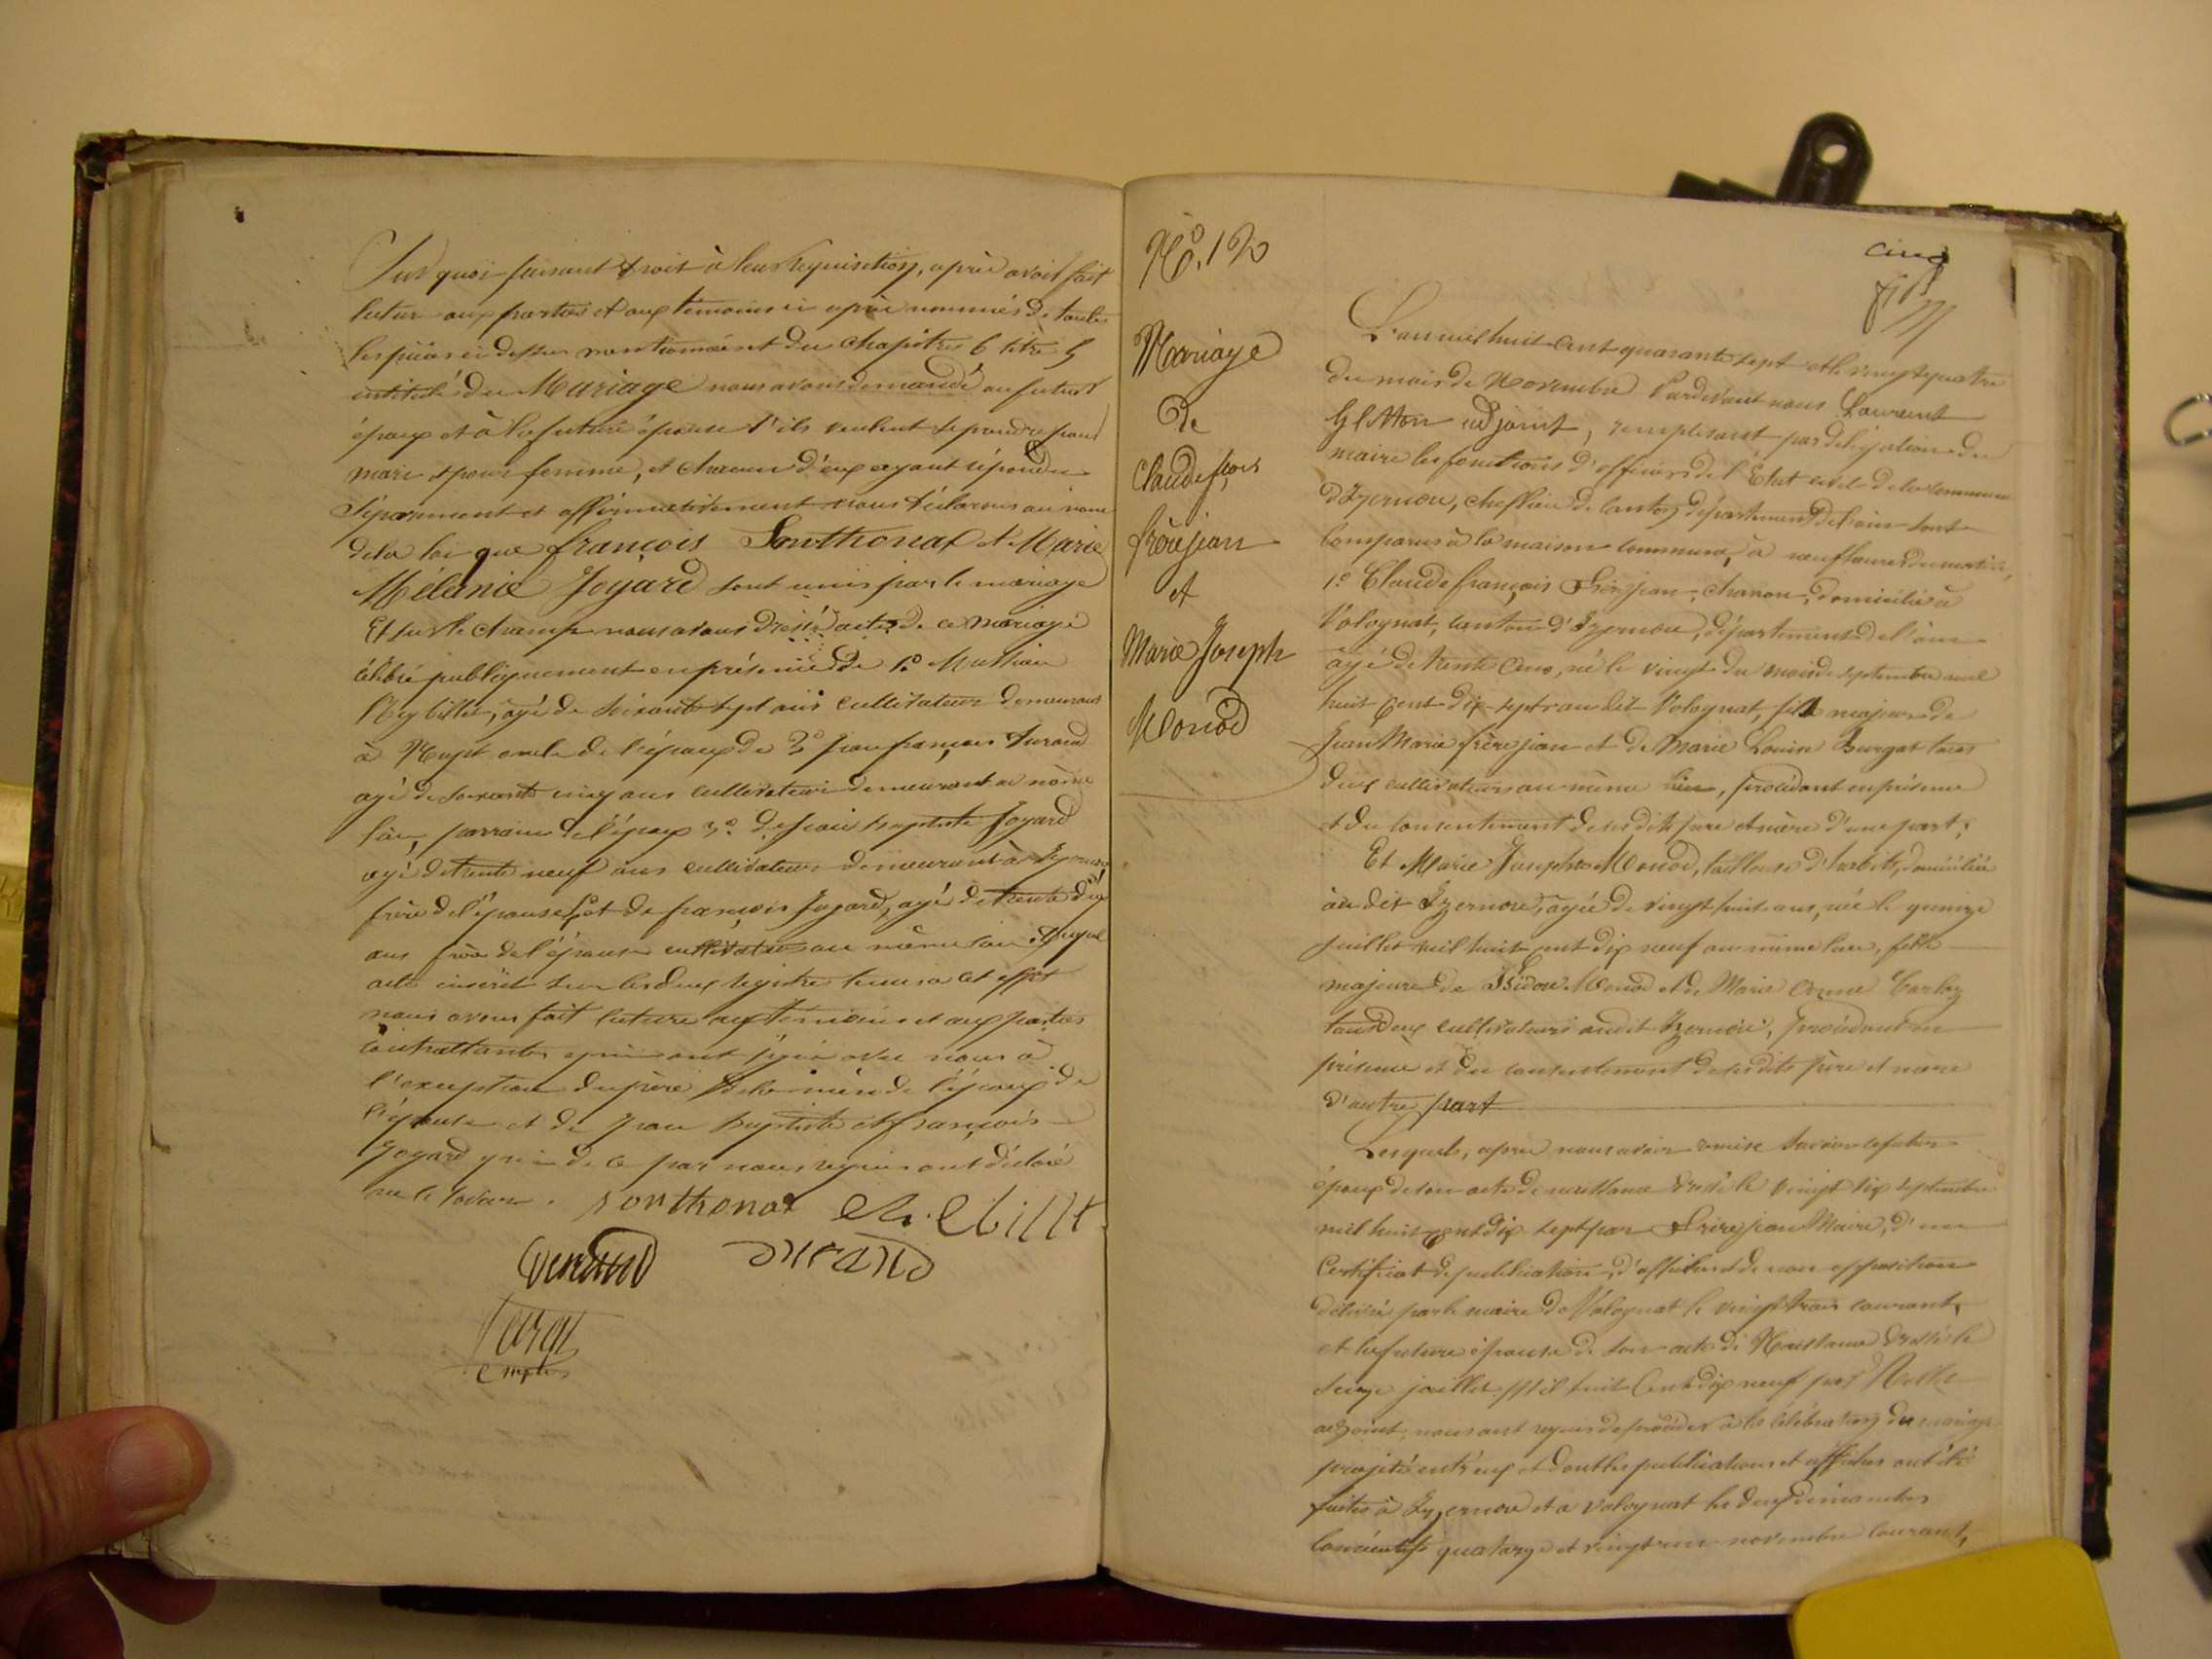 Sur quoi faisant droit à leur réquisition, après avoir fait
lecture aux parties et aux témoins ci après nommés de toutes
les pièces ci dessus mentionnées et du chapitre 6 titre 5
intitulé du Mariage nous avons demandé au futur
époux et à la future épouse s'ils veulent se prendre pour
mari et pour femme, et chacun d'eux ayant répondu
séparément et affirmativement nous déclarons au nom
de la loi que françois Sonthonax et Marie
Mélanie Joyard sont unis par le mariage
Et sur le champ nous avons dressé acte de ce mariage
célébré publiquement en présence de 1.o Mathieu
âgé de soixante sept ans cultivateur demeurant
à oncle de l'époux de 2o Jean françois Durand
agé de soixante cinq ans cultivateur demeurant au même
lieu, parrain de l'époux 3.o de Jean baptiste Joyard
agé de trente neuf ans cultivateur demeurant à Izernore
frère de l'épouse et de françois Joyard, agé de trente deux
ans frère de l'épouse cultivateur au même lieu. Duquel
acte inscrit sur les deux registres tenus à cet effet
nous avons fait lecture aux témoins et aux parties
contractantes qui ont signé avec nous à
l'exception du père de la mère de l'époux de
l'épouse et de Jean baptiste et françois
Joyard qui de ce par nous requis ont déclaré
ne le savoir. Sonthonax
Durand
No. 12
Mariage
de
Claude fçois
frèrejean
et
Marie Joseph
Monod
cinq
L'an mil huit cent quarante sept et le vingt quatre
du mois de Novembre Pardevant nous Laurent
adjoint, remplissant par délégation du
maire les fonctions d'officier de l'État civil de la commune
d'Izernore, chef lieu de canton département de l'ain sont
comparus à la maison commune, à neuf heures du matin,
1.o Claude françois Frèrejean, charron, domicilié à
Volognat, canton d'Izernore, département de l'ain
âgé de trente ans, né le vingt du mois de septembre mil
huit cent dix-sept au dit Volognat, fils majeur de
Jean Marie frèrejean et de Marie Louise Burgat tous
deux cultivateurs au même lieu, procédant en présence
et du consentement de ses dits père et mère d'une part;
Et Marie Josephe Monod, tailleuse d'habits, domiciliée
au dit Izernore, agée de vingt huit ans, née le quinze
juillet mil huit cent dix neuf au même lieu, fille
majeure de Isidore Monod et de Marie Anne
tous deux cultivateurs audit Izernore, procédant en
présence et du consentement de ses dits père et mère
d'autre part
Lesquels, après nous avoir remis savoir le futur
époux de son acte de naissance dressé le vingt six septembre
mil huit cent dix sept par Frèrejean Maire, d'un
Certificat de publication, d'affiche et de non opposition
délivré par le maire de Volognat le vingt trois courant,
et la future épouse de son acte de Naissance dressé le
seize juillet Mil huit Cent dix neuf par
adjoint, nous ont requis de procéder à la célébration du mariage
projeté entr'eux et dont les publications et affiches ont été
faites à Izernore et à Volognat les deux dimanches
consécutifs quatorze et vingt un novembre courant,